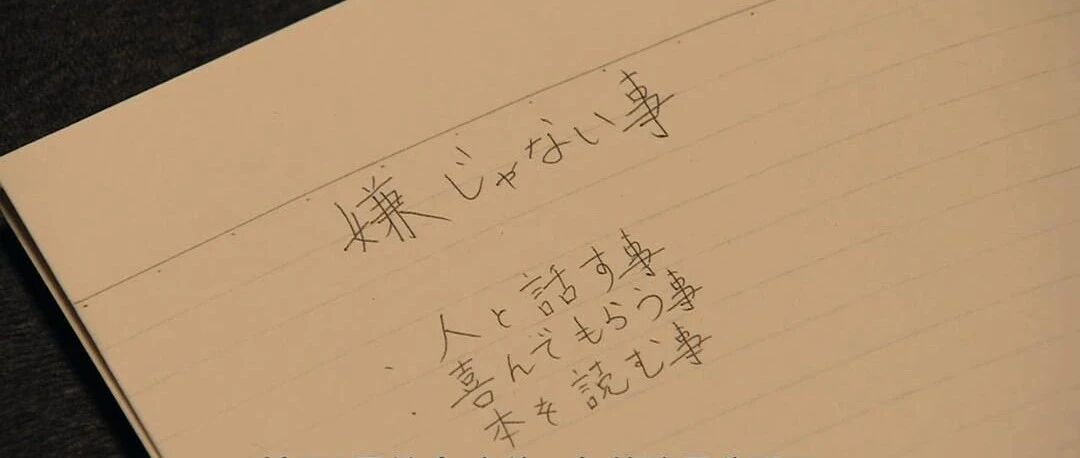 嫌じゃない事
人と話す事
喜んでもらう事
本を読む事